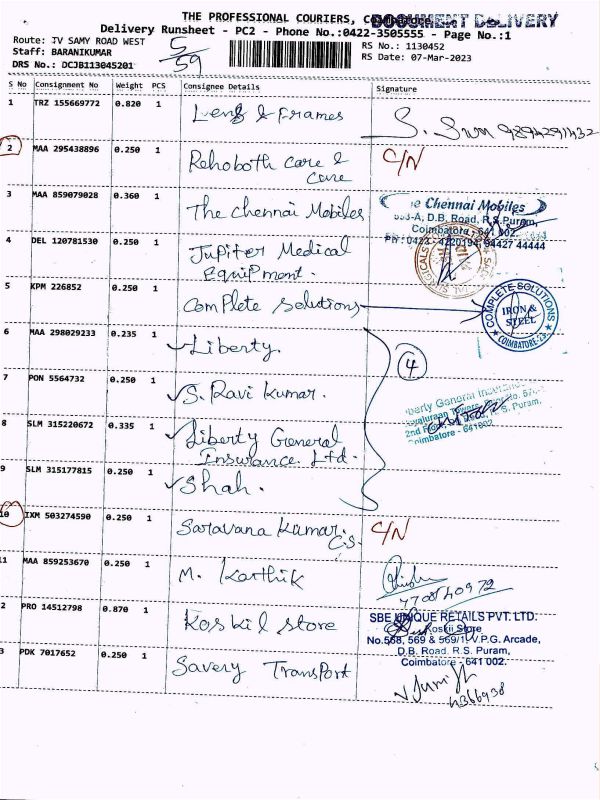 THE PROFESSIONAL COURIERS,
DOCUMENT DELIVERY
Delivery Runsheet - PC2 - Phone No.:0422-3505555 - Page No.:1
Route: TV SAMY ROAD WEST
Staff: BARANIKUMAR
DRS No.: DCJB113045201
5/59
RS No.: 1130452
RS Date: 07-Mar-2023
S No Consignment No Weight PCS Consignee Details Signature
1 TRZ 155669772 0.820 1 Lens & Frames 9894291432
2 MAA 295438896 0.250 1 Rehoboth care & C/N
Care
3 MAA 859079028 0.360 1 The Chennai Mobiles
e Chennai Mobiles
-A, D.B. Road, R.S.Puram,
Coimbatore - 641 002.
94427 44444
4 DEL 120781530 0.250 1 Jupiter Medical
Equipment.
5 KPM 226852 0.250 1 Complete Solutions
COMPLETE SOLUTIONS
IRON &
STEEL
COIMBATORE
6 MAA 298029233 0.235 1 Liberty.
4
7 PON 5564732 0.250 1 S. Ravi Kumar.
8 SLM 315220672 0.335 1 Liberty General
Insurance Ltd.
berty General
2nd
S. Puram,
oimbatore - 641002
9 SLM 315177815 0.250 1 Shah.
10 IXM 503274590 0.250 1 Saravana Kumar. C/N
C.S.
11 MAA 859253670 0.250 1 M. Karthik
7708740972
2 PRO 14512798 0.870 1 Koskil store
SBE UNIQUE RETAILS PVT. LTD.
Koskii Store
No.568, 569 & 569/1, V.P.G. Arcade,
D.B. Road, R.S. Puram,
Coimbatore - 641 002.
3 PDK 7017652 0.250 1 Savery Transport
4366938